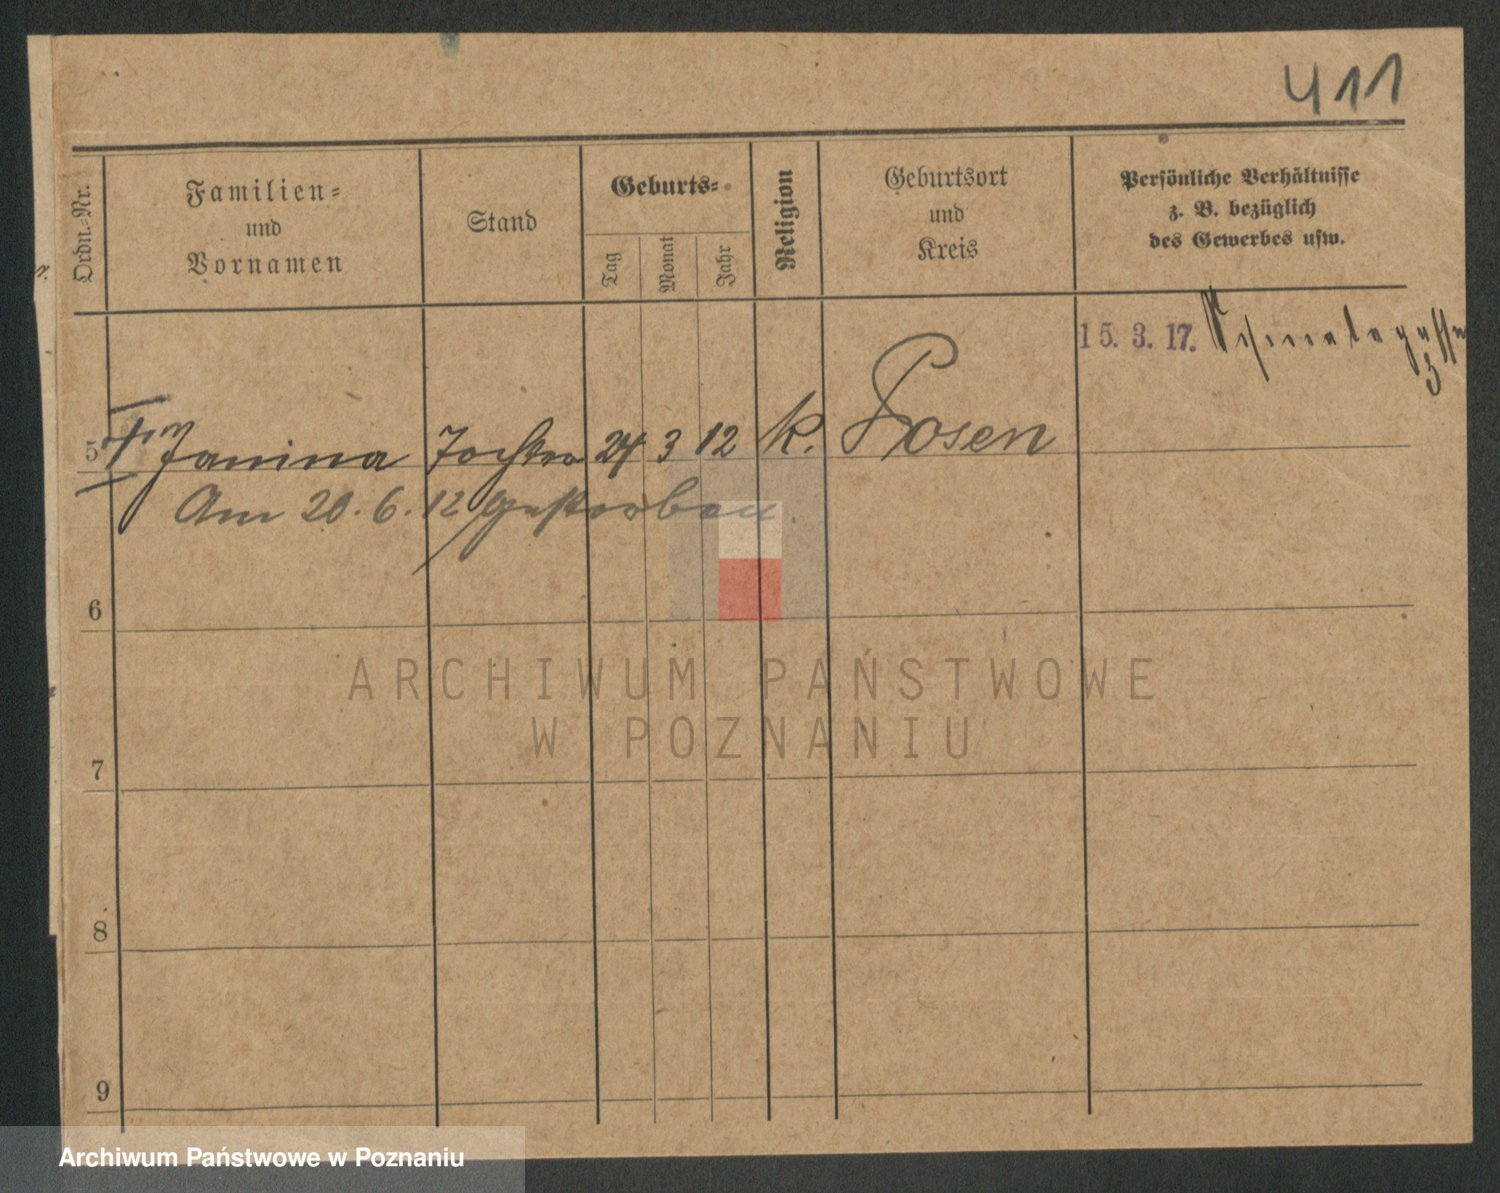 411
Ordn.-Nr.
Familien-
und
Vornamen
Stand
Geburts-
Tag
Monat
Jahr
Religion
Geburtsort
und
Kreis
Persönliche Verhältnisse
z. B. bezüglich
des Gewerbes usw.
15. 3. 17.
5 Janina Tochter 24 3 12 k. Posen
Am 20. 6. 12 gestorben.
6
7
8
9
ARCHIWUM PAŃSTWOWE
W POZNANIU
Archiwum Państwowe w Poznaniu